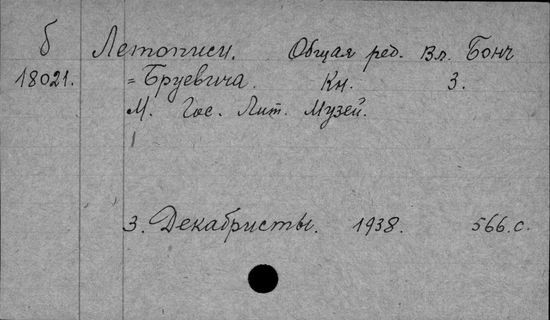 б Летописи. Общая ред. Вл. Бонч
18021. =Бруевича. Кн. 3.
М. Гос. Лит. Музей.
3. Декабристы. 1938. 566.с.